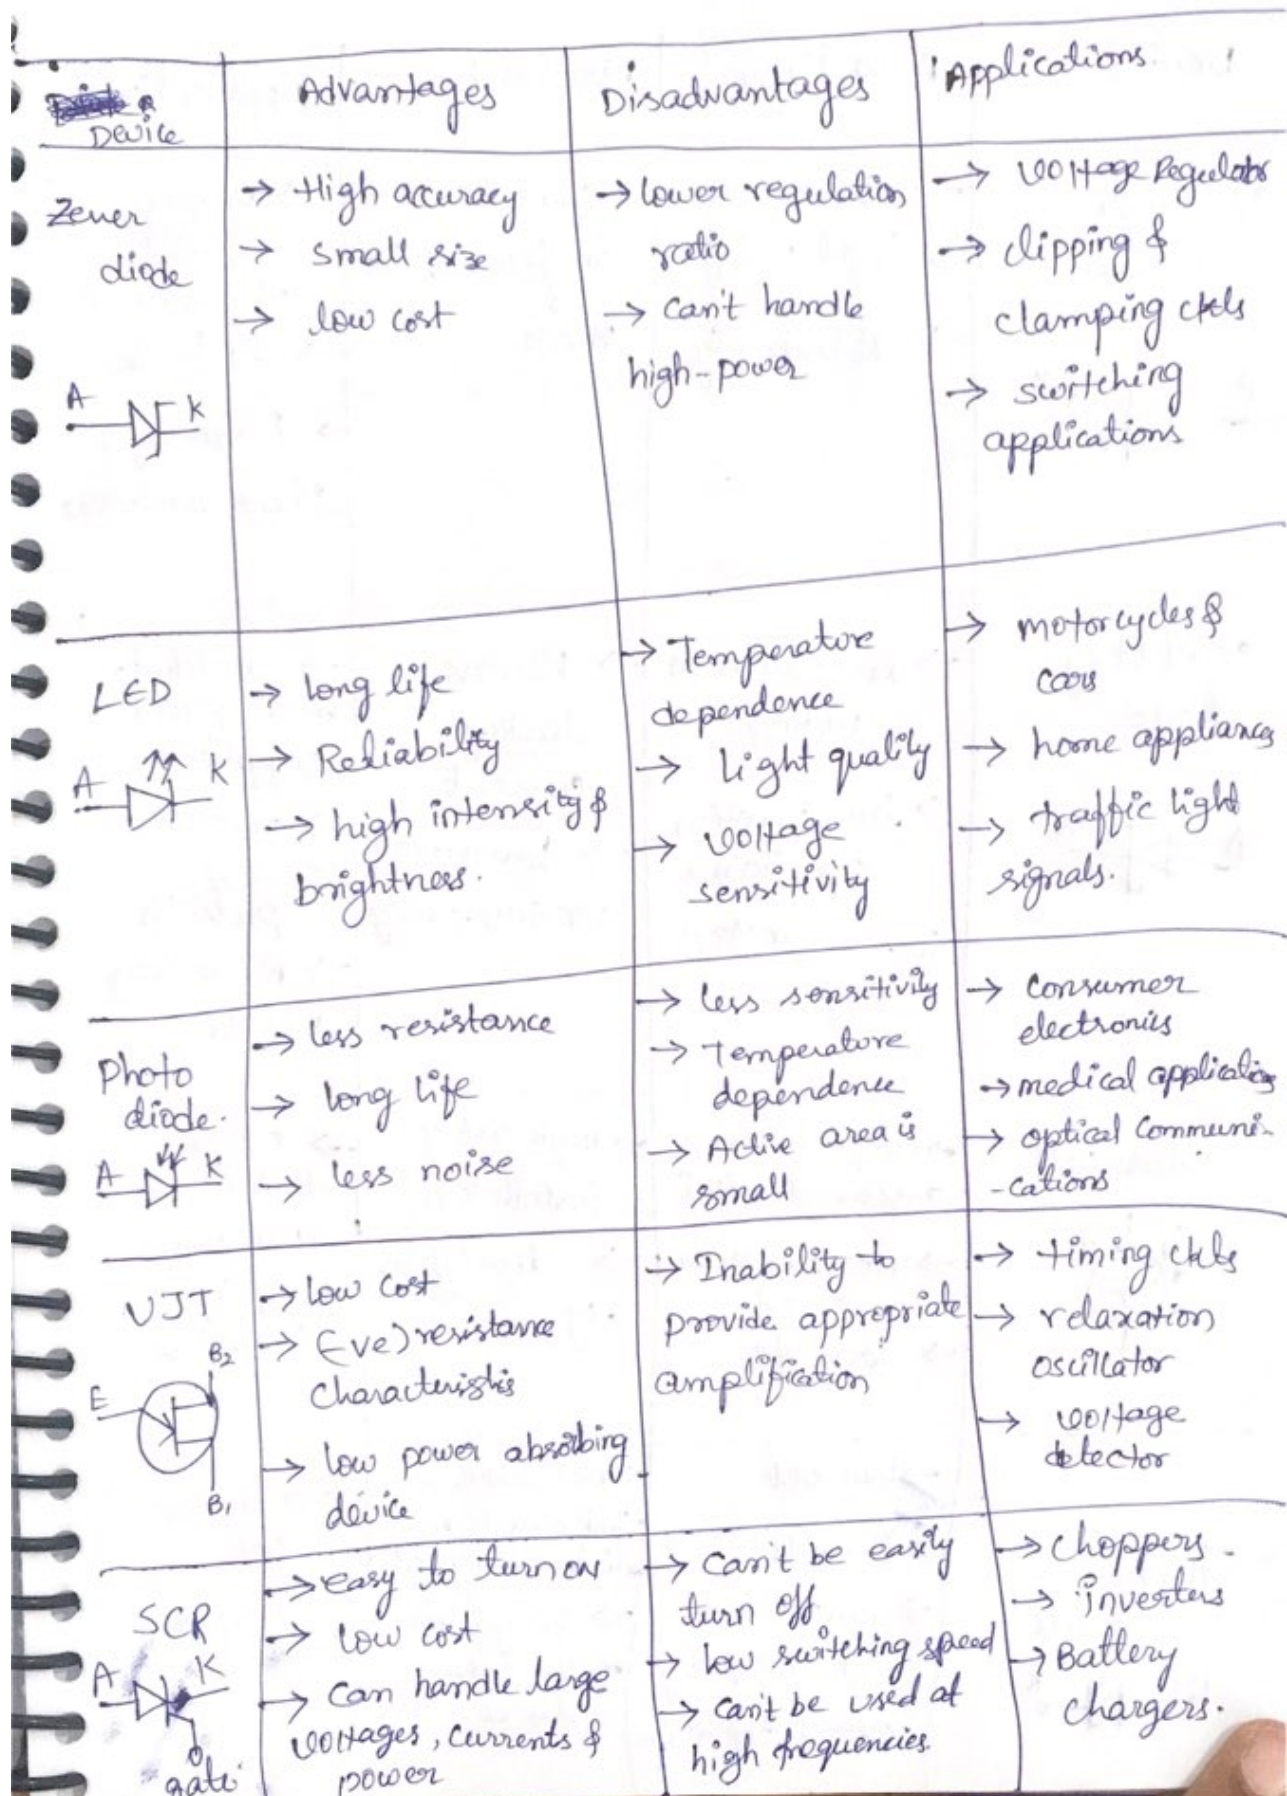 Device
Advantages
Disadvantages
Applications
Zener
diode
A
K
→ High accuracy
→ small size
→ low cost
→ lower regulation
ratio
→ can't handle
high-power
→ Voltage Regulator
→ clipping &
clamping ckts
→ switching
applications
LED
A
K
→ long life
→ Reliability
→ high intensity &
brightness.
→ Temperature
dependence
→ Light quality
→ Voltage
sensitivity
→ motorcycles &
cars
→ home appliances
→ traffic light
signals.
Photo
diode.
A
K
→ less resistance
→ long life
→ less noise
→ less sensitivity
→ Temperature
dependence
→ Active area is
small
→ consumer
electronics
→ medical applications
→ optical communi-
-cations
UJT
B2
E
B1
→ low cost
→ (-ve) resistance
characteristics
→ low power absorbing
device
→ Inability to
provide appropriate
amplification
→ timing ckts
→ relaxation
oscillator
→ voltage
detector
SCR
A
K
gate
→ easy to turn on
→ low cost
→ can handle large
voltages, currents &
power
→ can't be easily
turn off
→ low switching speed
→ can't be used at
high frequencies.
→ choppers.
→ inverters
→ Battery
chargers.